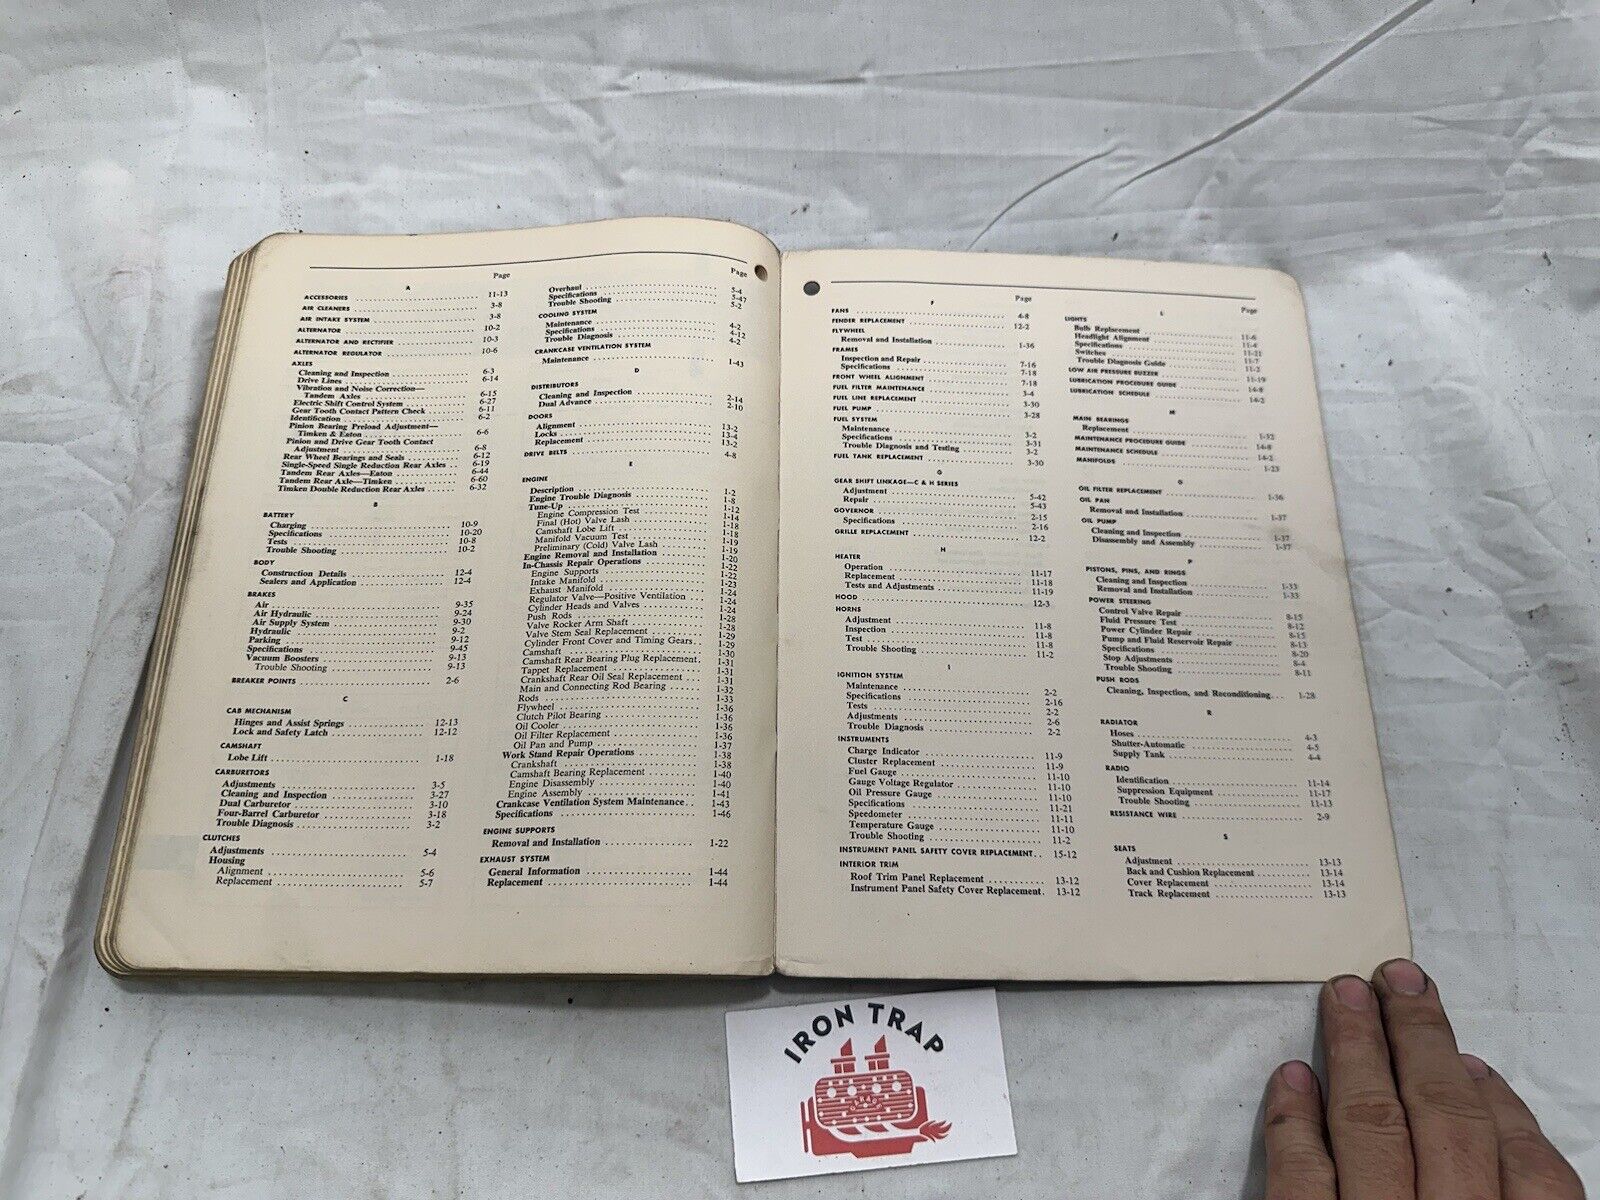 Page
A
ACCESSORIES 11-13
AIR CLEANERS 3-8
AIR INTAKE SYSTEM 3-8
ALTERNATOR 10-2
ALTERNATOR AND RECTIFIER 10-3
ALTERNATOR REGULATOR 10-6
AXLES
Cleaning and Inspection 6-3
Drive Lines 6-14
Vibration and Noise Correction—
Tandem Axles 6-15
Electric Shift Control System 6-27
Gear Tooth Contact Pattern Check 6-11
Identification 6-2
Pinion Bearing Preload Adjustment—
Timken & Eaton 6-6
Pinion and Drive Gear Tooth Contact
Adjustment 6-8
Rear Wheel Bearings and Seals 6-12
Single-Speed Single Reduction Rear Axles 6-19
Tandem Rear Axles—Eaton 6-44
Tandem Rear Axle—Timken 6-60
Timken Double Reduction Rear Axles 6-32
B
BATTERY
Charging 10-9
Specifications 10-20
Tests 10-8
Trouble Shooting 10-2
BODY
Construction Details 12-4
Sealers and Application 12-4
BRAKES
Air 9-35
Air Hydraulic 9-24
Air Supply System 9-30
Hydraulic 9-2
Parking 9-12
Specifications 9-45
Vacuum Boosters 9-13
Trouble Shooting 9-13
BREAKER POINTS 2-6
C
CAB MECHANISM
Hinges and Assist Springs 12-13
Lock and Safety Latch 12-12
CAMSHAFT
Lobe Lift 1-18
CARBURETORS
Adjustments 3-5
Cleaning and Inspection 3-27
Dual Carburetor 3-10
Four-Barrel Carburetor 3-18
Trouble Diagnosis 3-2
CLUTCHES
Adjustments 5-4
Housing
Alignment 5-6
Replacement 5-7
Page
Overhaul 5-4
Specifications 5-47
Trouble Shooting 5-2
COOLING SYSTEM
Maintenance 4-2
Specifications 4-12
Trouble Diagnosis 4-2
CRANKCASE VENTILATION SYSTEM
Maintenance 1-43
D
DISTRIBUTORS
Cleaning and Inspection 2-14
Dual Advance 2-10
DOORS
Alignment 13-2
Locks 13-4
Replacement 13-2
DRIVE BELTS 4-8
E
ENGINE
Description 1-2
Engine Trouble Diagnosis 1-8
Tune-Up 1-12
Engine Compression Test 1-14
Final (Hot) Valve Lash 1-18
Camshaft Lobe Lift 1-18
Manifold Vacuum Test 1-19
Preliminary (Cold) Valve Lash 1-19
Engine Removal and Installation 1-20
In-Chassis Repair Operations 1-22
Engine Supports 1-22
Intake Manifold 1-23
Exhaust Manifold 1-24
Regulator Valve—Positive Ventilation 1-24
Cylinder Heads and Valves 1-24
Push Rods 1-28
Valve Rocker Arm Shaft 1-28
Valve Stem Seal Replacement 1-29
Cylinder Front Cover and Timing Gears 1-29
Camshaft 1-30
Camshaft Rear Bearing Plug Replacement 1-31
Tappet Replacement 1-31
Crankshaft Rear Oil Seal Replacement 1-31
Main and Connecting Rod Bearing 1-32
Rods 1-33
Flywheel 1-36
Clutch Pilot Bearing 1-36
Oil Cooler 1-36
Oil Filter Replacement 1-36
Oil Pan and Pump 1-37
Work Stand Repair Operations 1-38
Crankshaft 1-38
Camshaft Bearing Replacement 1-40
Engine Disassembly 1-40
Engine Assembly 1-41
Crankcase Ventilation System Maintenance 1-43
Specifications 1-46
ENGINE SUPPORTS
Removal and Installation 1-22
EXHAUST SYSTEM
General Information 1-44
Replacement 1-44
F Page
FANS 4-8
FENDER REPLACEMENT 12-2
FLYWHEEL
Removal and Installation 1-36
FRAMES
Inspection and Repair 7-16
Specifications 7-18
FRONT WHEEL ALIGNMENT 7-18
FUEL FILTER MAINTENANCE 3-4
FUEL LINE REPLACEMENT 3-30
FUEL PUMP 3-28
FUEL SYSTEM
Maintenance 3-2
Specifications 3-31
Trouble Diagnosis and Testing 3-2
FUEL TANK REPLACEMENT 3-30
G
GEAR SHIFT LINKAGE—C & H SERIES
Adjustment 5-42
Repair 5-43
GOVERNOR 2-15
Specifications 2-16
GRILLE REPLACEMENT 12-2
H
HEATER
Operation 11-17
Replacement 11-18
Tests and Adjustments 11-19
HOOD 12-3
HORNS
Adjustment 11-8
Inspection 11-8
Test 11-8
Trouble Shooting 11-2
I
IGNITION SYSTEM
Maintenance 2-2
Specifications 2-16
Tests 2-2
Adjustments 2-6
Trouble Diagnosis 2-2
INSTRUMENTS
Charge Indicator 11-9
Cluster Replacement 11-9
Fuel Gauge 11-10
Gauge Voltage Regulator 11-10
Oil Pressure Gauge 11-10
Specifications 11-21
Speedometer 11-11
Temperature Gauge 11-10
Trouble Shooting 11-2
INSTRUMENT PANEL SAFETY COVER REPLACEMENT 15-12
INTERIOR TRIM
Roof Trim Panel Replacement 13-12
Instrument Panel Safety Cover Replacement 13-12
L Page
LIGHTS
Bulb Replacement 11-6
Headlight Alignment 11-4
Specifications 11-21
Switches 11-7
Trouble Diagnosis Guide 11-2
LOW AIR PRESSURE BUZZER 11-19
LUBRICATION PROCEDURE GUIDE 14-8
LUBRICATION SCHEDULE 14-2
M
MAIN BEARINGS
Replacement 1-32
MAINTENANCE PROCEDURE GUIDE 14-8
MAINTENANCE SCHEDULE 14-2
MANIFOLDS 1-23
OIL FILTER REPLACEMENT 1-36
OIL PAN
Removal and Installation 1-37
OIL PUMP
Cleaning and Inspection 1-37
Disassembly and Assembly 1-37
P
PISTONS, PINS, AND RINGS
Cleaning and Inspection 1-33
Removal and Installation 1-33
POWER STEERING
Control Valve Repair 8-15
Fluid Pressure Test 8-12
Power Cylinder Repair 8-15
Pump and Fluid Reservoir Repair 8-13
Specifications 8-20
Stop Adjustments 8-4
Trouble Shooting 8-11
PUSH RODS
Cleaning, Inspection, and Reconditioning 1-28
R
RADIATOR
Hoses 4-3
Shutter-Automatic 4-5
Supply Tank 4-4
RADIO
Identification 11-14
Suppression Equipment 11-17
Trouble Shooting 11-13
RESISTANCE WIRE 2-9
S
SEATS
Adjustment 13-13
Back and Cushion Replacement 13-14
Cover Replacement 13-14
Track Replacement 13-13
IRON TRAP
GARAGE